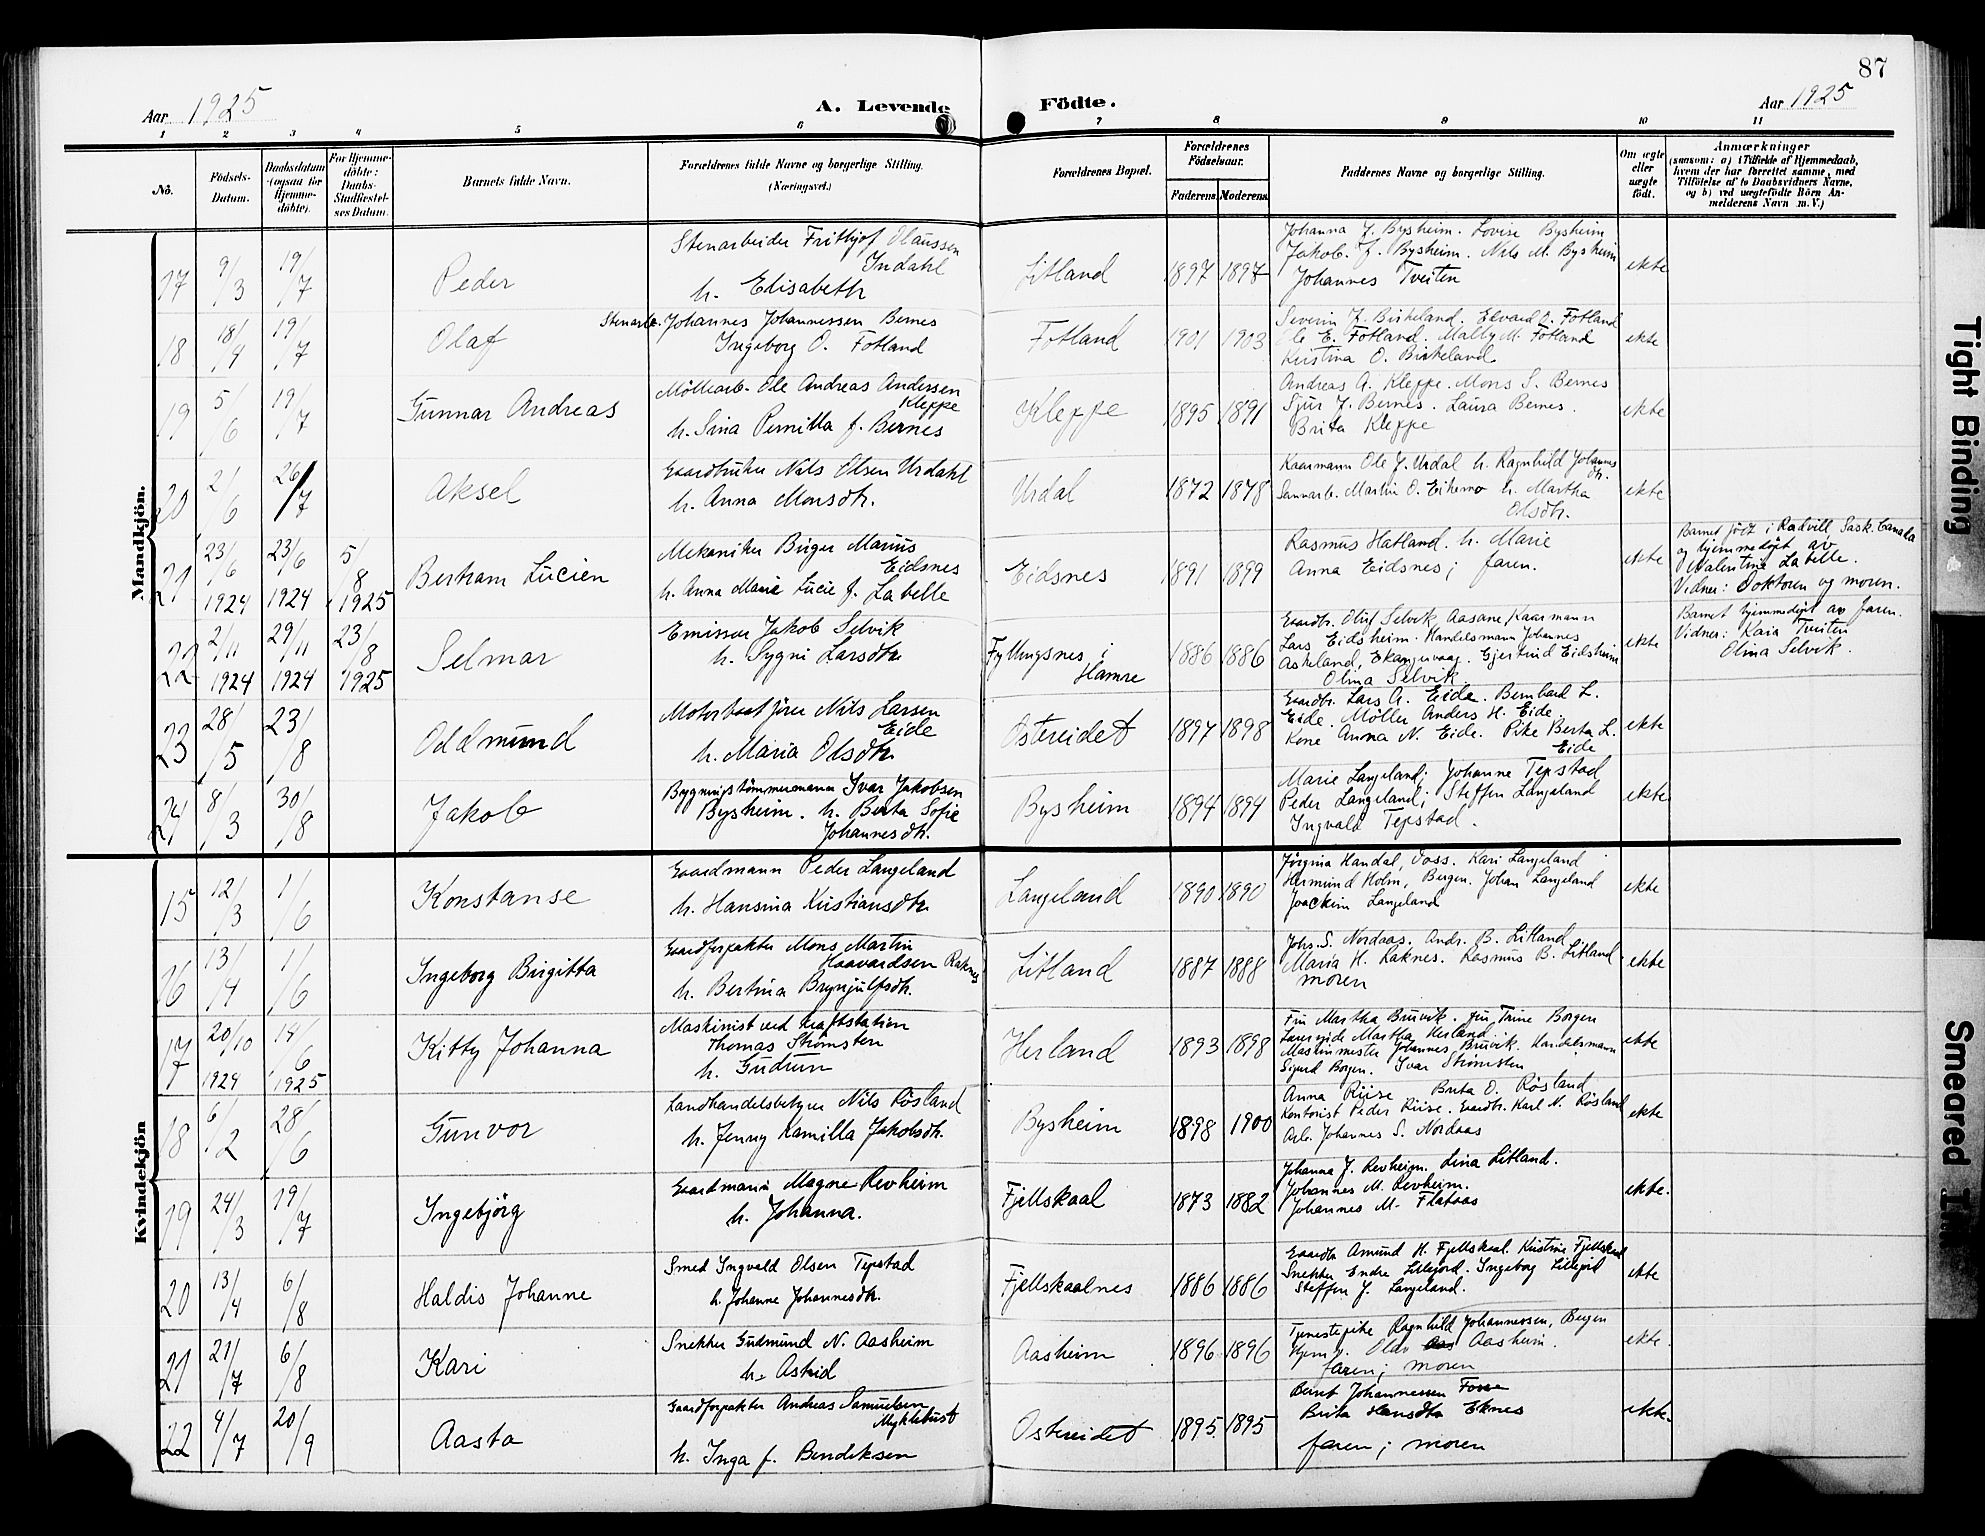 87
Aar 1925
A. Levende Födte.
Aar 1925
1 2 3 4 5 6 7 8 9 10 11
No.
Födsels-
Datum.
Daabsdatum
(ogsaa for
Hjemme-
döbte).
For Hjemme-
döbte:
Daabs-
Stadfæstel-
ses Datum.
Barnets fulde Navn.
Forældrenes fulde Navne og borgerlige Stilling.
(Næringsvei.)
Forældrenes Bopæl.
Forældrenes
Födselsaar.
Faderens. Moderens.
Faddernes Navne og borgerlige Stilling.
Om ægte
eller
uægte
födt.
Anmærkninger
(saasom: a) i Tilfælde af Hjemmedaab,
hvem der har forrettet samme, med
Tilföielse af to Daabsvidners Navne,
og b) ved uægtefödte Börn An-
melderens Navn m. V.)
Mandkjön.
17 9/3 19/7 Peder
Stenarbeider Frithjof Olaussen
Indahl
h. Elisabeth
Litland 1897 1897
Johanna J. Bysheim. Lovise Bysheim
Jakob. J. Bysheim. Nils M. Bysheim
Johannes Tveiten
ekte
18 18/4 19/7 Olaf
Stenarb. Johannes Johannessen Bernes
Ingeborg O. Fotland
Fotland 1901 1903
Severin J. Birkeland. Edvard O. Fotland
Ole E. Fotland. Mally M. Fotland
Kristina O. Birkeland
ekte
19 5/6 19/7 Gunnar Andreas
Möllearb. Ole Andreas Andersen
Kleppe
h. Sina Pernilla f. Bernes
Kleppe 1895 1891
Andreas A. Kleppe. Mons S. Bernes
Sjur J. Bernes. Laura Bernes.
Brita Kleppe
ekte
20 2/6 26/7 Aksel
Gaardbruker Nils Olsen Urdahl
h. Anna Monsdtr.
Urdal 1872 1878
Kaarmann Ole J. Urdal h. Ragnhild Johannes
dtr.
Sømarb. Martin O. Eikemo h. Martha
Olsdtr.
ekte
21 23/6 1924 23/6 1924 5/8 1925 Bertram Lucien
Mekaniker Birger Marius
Eidsnes
h. Anna Marie Lucie f. Labelle
Eidsnes 1891 1899
Rasmus Hatland. h. Marie
Anna Eidsnes; faren.
ekte
Barnet født i Radvill, Sask. Canada
og hjemmedøpt av
Valentine Labelle.
Vidner: Doktoren og moren.
22 2/11 1924 29/11 1924 23/8 1925 Selmar
Emissær Jakob Selvik
h. Sygni Larsdtr.
Fyllingsnes i
Hamre 1886 1886
Gaardbr. Oluf Selvik, Aasane, Kaarmann
Lars Eidsheim. Handelsmann Johannes
Askeland, Ekangervaag. Gjertrud Eidsheim
Olina Selvik
ekte
Barnet hjemmedøpt av faren.
Vidner: Kaia Tveiten
Olina Selvik.
23 28/5 23/8 Oddmund
Motorbaatfører Nils Larsen
Eide
h. Maria Olsdtr.
Ostereidet 1897 1898
Gaardbr. Lars A. Eide. Bernhard L.
Eide. Møller Anders H. Eide.
Kone Anna N. Eide. Pike Berta L.
Eide
ekte
24 8/3 30/8 Jakob
Bygningstömmermann Ivar Jakobsen
Bysheim. h. Berta Sofie
Johannesdtr.
Bysheim 1894 1894
Marie Langeland; Johanne Tepstad
Peder Langeland; Steffen Langeland
Ingvald Tepstad.
ekte
Kvindekjön
15 12/3 1/6 Konstanse
Gaardmann Peder Langeland
h. Hansina Kristiansdtr.
Langeland 1890 1890
Jörgina Handal, Voss. Kari Langeland
Hermund Holm, Bergen. Johan Langeland
Joackim Langeland
ekte
16 13/4 1/6 Ingeborg Birgitta
Gaardforpakter Mons Martin
Haavardsen Raknes
h. Bertina Brynjulfsdtr.
Litland 1887 1888
Johs. S. Nordaas. Andr. B. Litland
Maria H. Raknes. Rasmus B. Litland
moren
ekte
17 20/10 1924 14/6 1925 Kitty Johanna
Maskinist ved kraftstation
Thomas Strömsten
h. Gudrun
Herland 1893 1898
Fru Martha Bruvik. fru Trine Borgen
Lærerinde Martha Herland.
Maskinmester Johannes Bruvik. Handelsmann
Sigurd Borgen. Ivar Strömsten
ekte
18 6/2 28/6 Gunvor
Landhandelsbetyrer Nils Røsland
h. Jenny Kamilla Jakobsdtr.
Bysheim 1898 1900
Anna Riise Brita O. Røsland
Kontorist Peder Riise. Gaardbr. Karl N. Røsland
Arb. Johannes S. Nordaas
ekte
19 24/3 19/7 Ingebjörg
Gaardmann Magne Revheim
h. Johanna.
Fjellskaal 1873 1882
Johanna J. Revheim. Lina Litland.
Johannes M. Revheim.
Johannes M. Flataas
ekte.
20 13/4 6/8 Haldis Johanne
Smed Ingvald Olsen Tepstad
h. Johanne Johannesdtr.
Fjellskaalnes 1886 1886
Gaardbr. Amund H. Fjellskaal. Kristine Fjellskaal
Snekker Endre Lillejord. Ingeborg Lillejord
Steffen J. Langeland.
ekte
21 21/7 6/8 Kari
Snekker Gudmund N. Aasheim
h. Astrid
Aasheim 1896 1896
Tjenestepike Ragnhild Johannessen, Bergen
Olav Aasheim.
faren; moren
ekte.
22 4/7 20/9 Aasta
Gaardforpakter Andreas Samuelsen
Myklebust
h. Inga f. Bendiksen
Ostereidet 1895. 1895
Bernt Johannessen Fosse
Brita Hansdtr Eknes
faren; moren
ekte.
Tight Binding
Smeared Ink